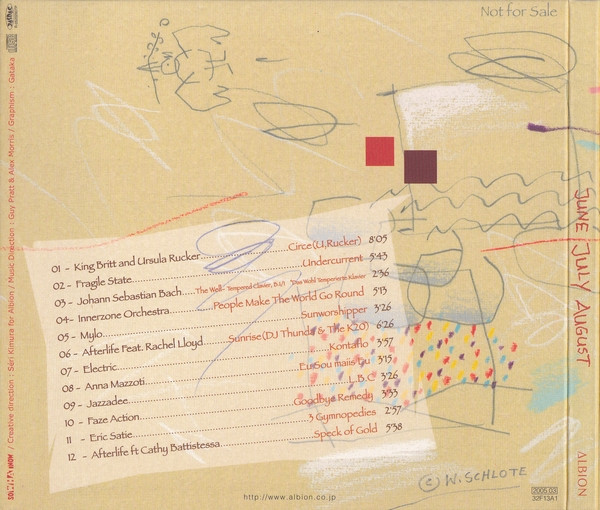 Not for Sale
01 - King Britt and Ursula Rucker Circe (U,Rucker) 8:05
02 - Fragile State Undercurrent 5:43
03 - Johann Sebastian Bach The Well- Tempered Clavier, "Das Wohl Temperierte Klavier 2:36
04 - Innerzone Orchestra People Make The World Go Round 5:13
05 - Mylo Sunworshipper 3:26
06 - Afterlife Feat. Rachel Lloyd Sunrise (DJ Thunda & The K2O) 6:26
07 - Electric Kontaflo 3:57
08 - Anna Mazzoti Eu Sou mais tu 3:15
09 - Jazzadee L.B.C 3:26
10 - Faze Action Goodbye Remedy 3:33
11 - Eric Satie 3 Gymnopedies 2:57
12 - Afterlife ft Cathy Battistessa Speck of Gold 5:38
© W. SCHLOTE
http://www.albion.co.jp
2005.03
33F13A1
/ Creative direction : Seri Kimura for Albion / Music Direction : Guy Pratt & Alex Morris / Graphism : Gataka
JUNE JULY AUGUST
ALBION